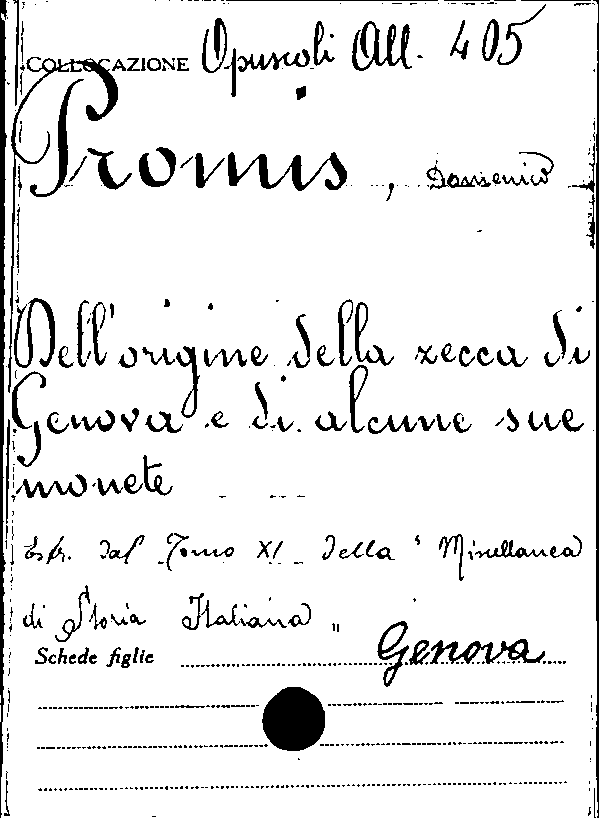 COLLOCAZIONE Opuscoli All. 405
Promis, Domenico
Dell'origine della zecca di
Genova e di alcune sue
monete
Estr. dal Tomo XI della "Miscellanea
di Storia Italiana"
Schede figlie Genova